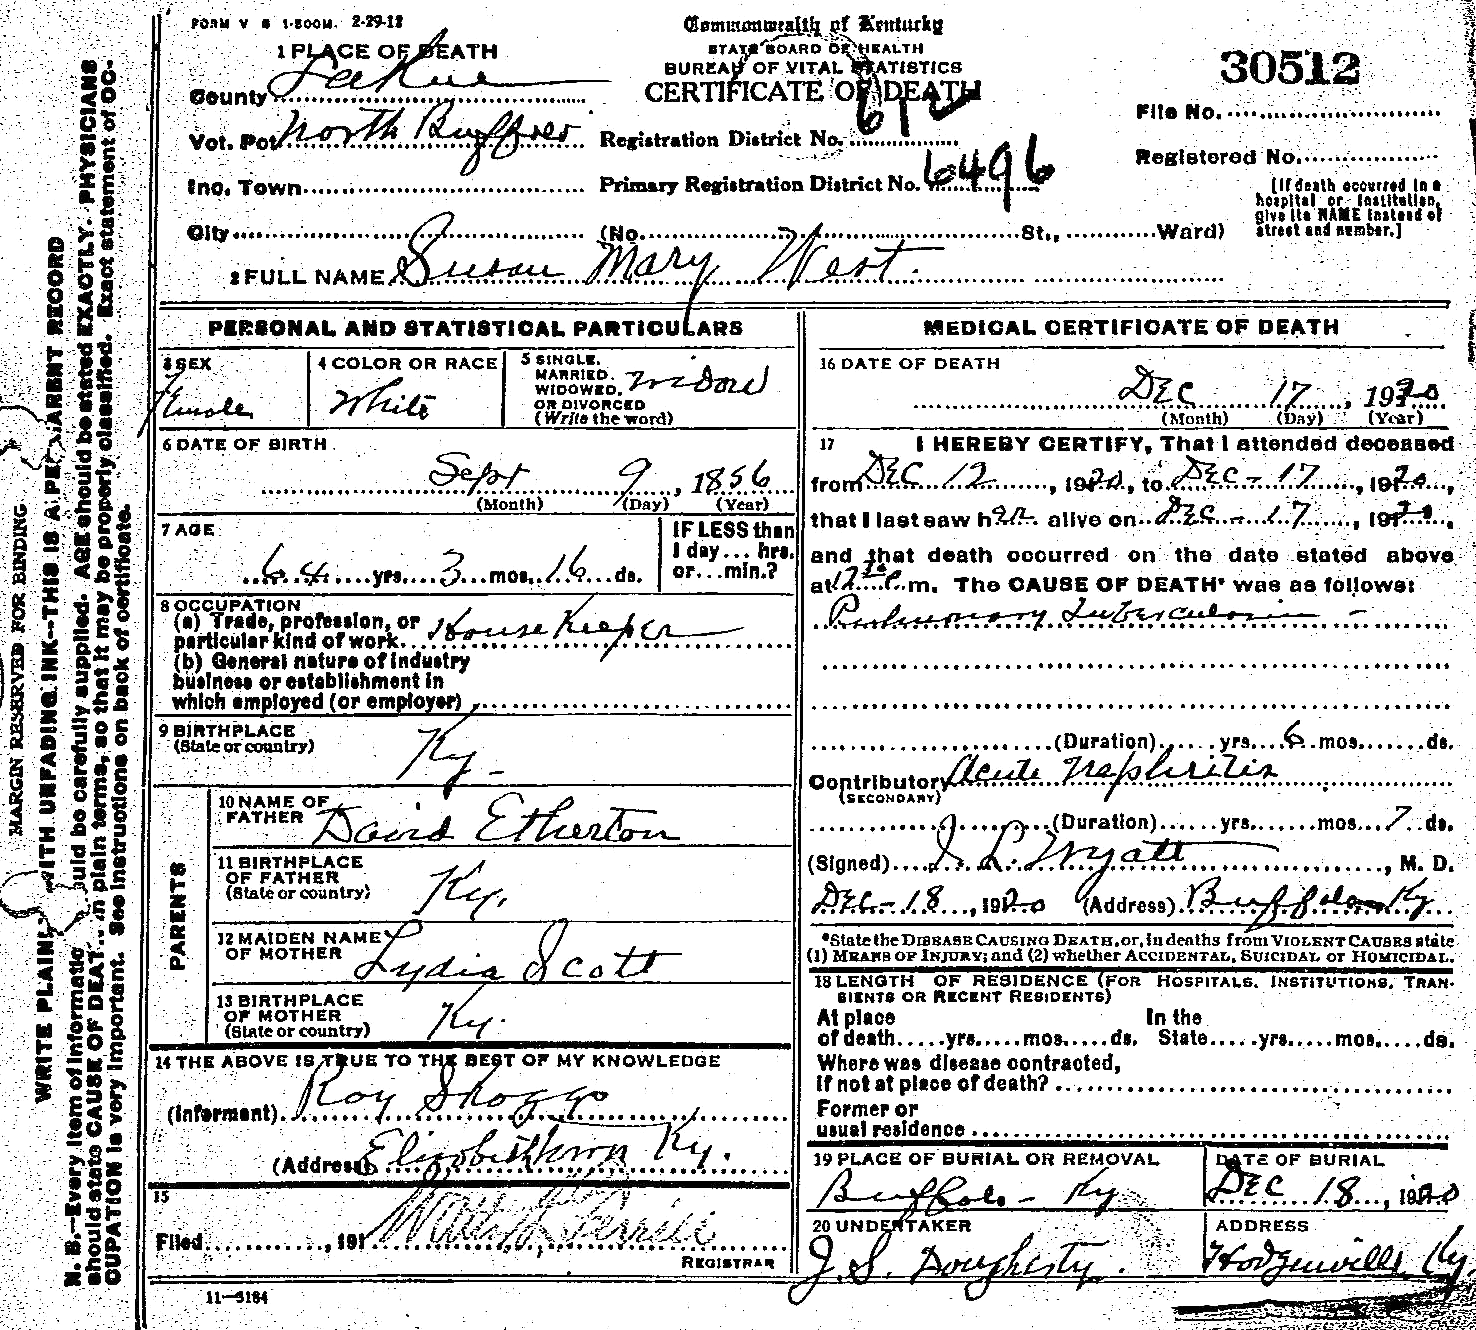 FORM V S 1-500M. 2-29-12
Commonwealth of Kentucky
STATE BOARD OF HEALTH
BUREAU OF VITAL STATISTICS
CERTIFICATE OF DEATH
30512
1 PLACE OF DEATH
County LaRue
Vot. Pct North Buffalo
Registration District No. 612
File No.
Inc. Town
Primary Registration District No. 6496
Registered No.
[If death occurred in a
hospital or institution,
give its NAME instead of
street and number.]
City (No. St., Ward)
2 FULL NAME Susan Mary West.
PERSONAL AND STATISTICAL PARTICULARS
3 SEX
Female
4 COLOR OR RACE
White
5 SINGLE,
MARRIED,
WIDOWED,
OR DIVORCED
(Write the word)
Widow
6 DATE OF BIRTH
Sept 9, 1856
(Month) (Day) (Year)
7 AGE
64 yrs. 3 mos. 16 ds.
IF LESS than
1 day... hrs.
or...min.?
8 OCCUPATION
(a) Trade, profession, or
particular kind of work. House Keeper
(b) General nature of industry
business or establishment in
which employed (or employer)
9 BIRTHPLACE
(State or country)
Ky.
PARENTS
10 NAME OF
FATHER
David Etherton
11 BIRTHPLACE
OF FATHER
(State or country)
Ky.
12 MAIDEN NAME
OF MOTHER
Lydia Scott
13 BIRTHPLACE
OF MOTHER
(State or country)
Ky.
14 THE ABOVE IS TRUE TO THE BEST OF MY KNOWLEDGE
(Informant) Roy Skaggs
(Address) Elizabethtown Ky.
15
Filed , 191
REGISTRAR
11-3184
MEDICAL CERTIFICATE OF DEATH
16 DATE OF DEATH
DEC 17, 1920
(Month) (Day) (Year)
17 I HEREBY CERTIFY, That I attended deceased
from DEC 12, 1920, to DEC-17, 1920,
that I last saw her alive on DEC-17, 1920,
and that death occurred on the date stated above
at m. The CAUSE OF DEATH* was as follows:
Pulmonary Tuberculosis -
(Duration) yrs. 6 mos. ds.
Contributory Acute Nephritis
(SECONDARY)
(Duration) yrs. mos. 7 ds.
(Signed) J. L. Wyatt, M. D.
DEC-18, 1920 (Address) Buffalo Ky
*State the DISEASE CAUSING DEATH, or, in deaths from VIOLENT CAUSES state
(1) MEANS OF INJURY; and (2) whether ACCIDENTAL, SUICIDAL or HOMICIDAL.
18 LENGTH OF RESIDENCE (FOR HOSPITALS, INSTITUTIONS, TRAN-
SIENTS OR RECENT RESIDENTS)
At place In the
of death yrs. mos. ds. State yrs. mos. ds.
Where was disease contracted,
If not at place of death?
Former or
usual residence
19 PLACE OF BURIAL OR REMOVAL
Buffalo - Ky
DATE OF BURIAL
DEC 18, 1920
20 UNDERTAKER
J. S. Dougherty.
ADDRESS
Hodgenville Ky.
MARGIN RESERVED FOR BINDING
WRITE PLAINLY WITH UNFADING INK—THIS IS A PERMANENT RECORD
N. B.—Every item of information should be carefully supplied. AGE should be stated EXACTLY. PHYSICIANS
should state CAUSE OF DEATH in plain terms, so that it may be properly classified. Exact statement of OC-
CUPATION is very important. See instructions on back of certificate.